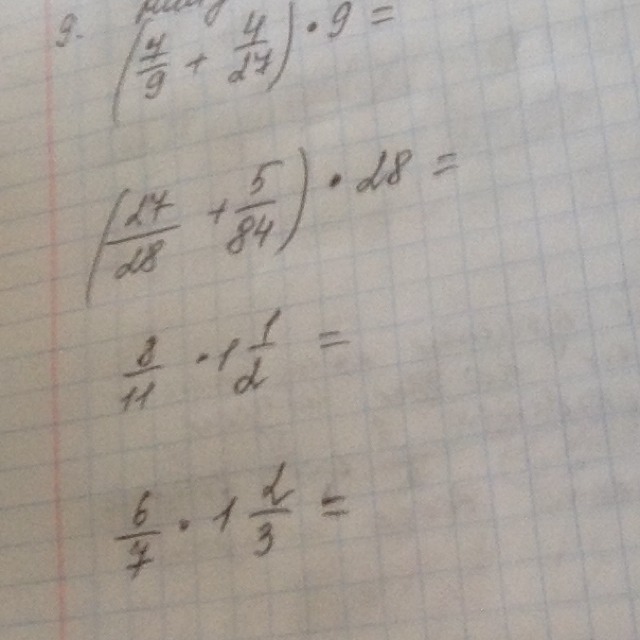 9.
(4/9 + 4/27) · 9 =
(27/28 + 5/84) · 28 =
8/11 · 1 1/2 =
6/7 · 1 2/3 =